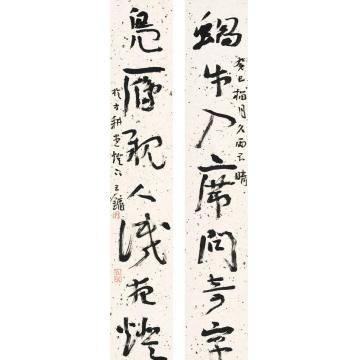 蝸牛入席問奇字
癸巳月久雨不晴
鳧雁親人識夜燈
於耕堂燈下王鏞